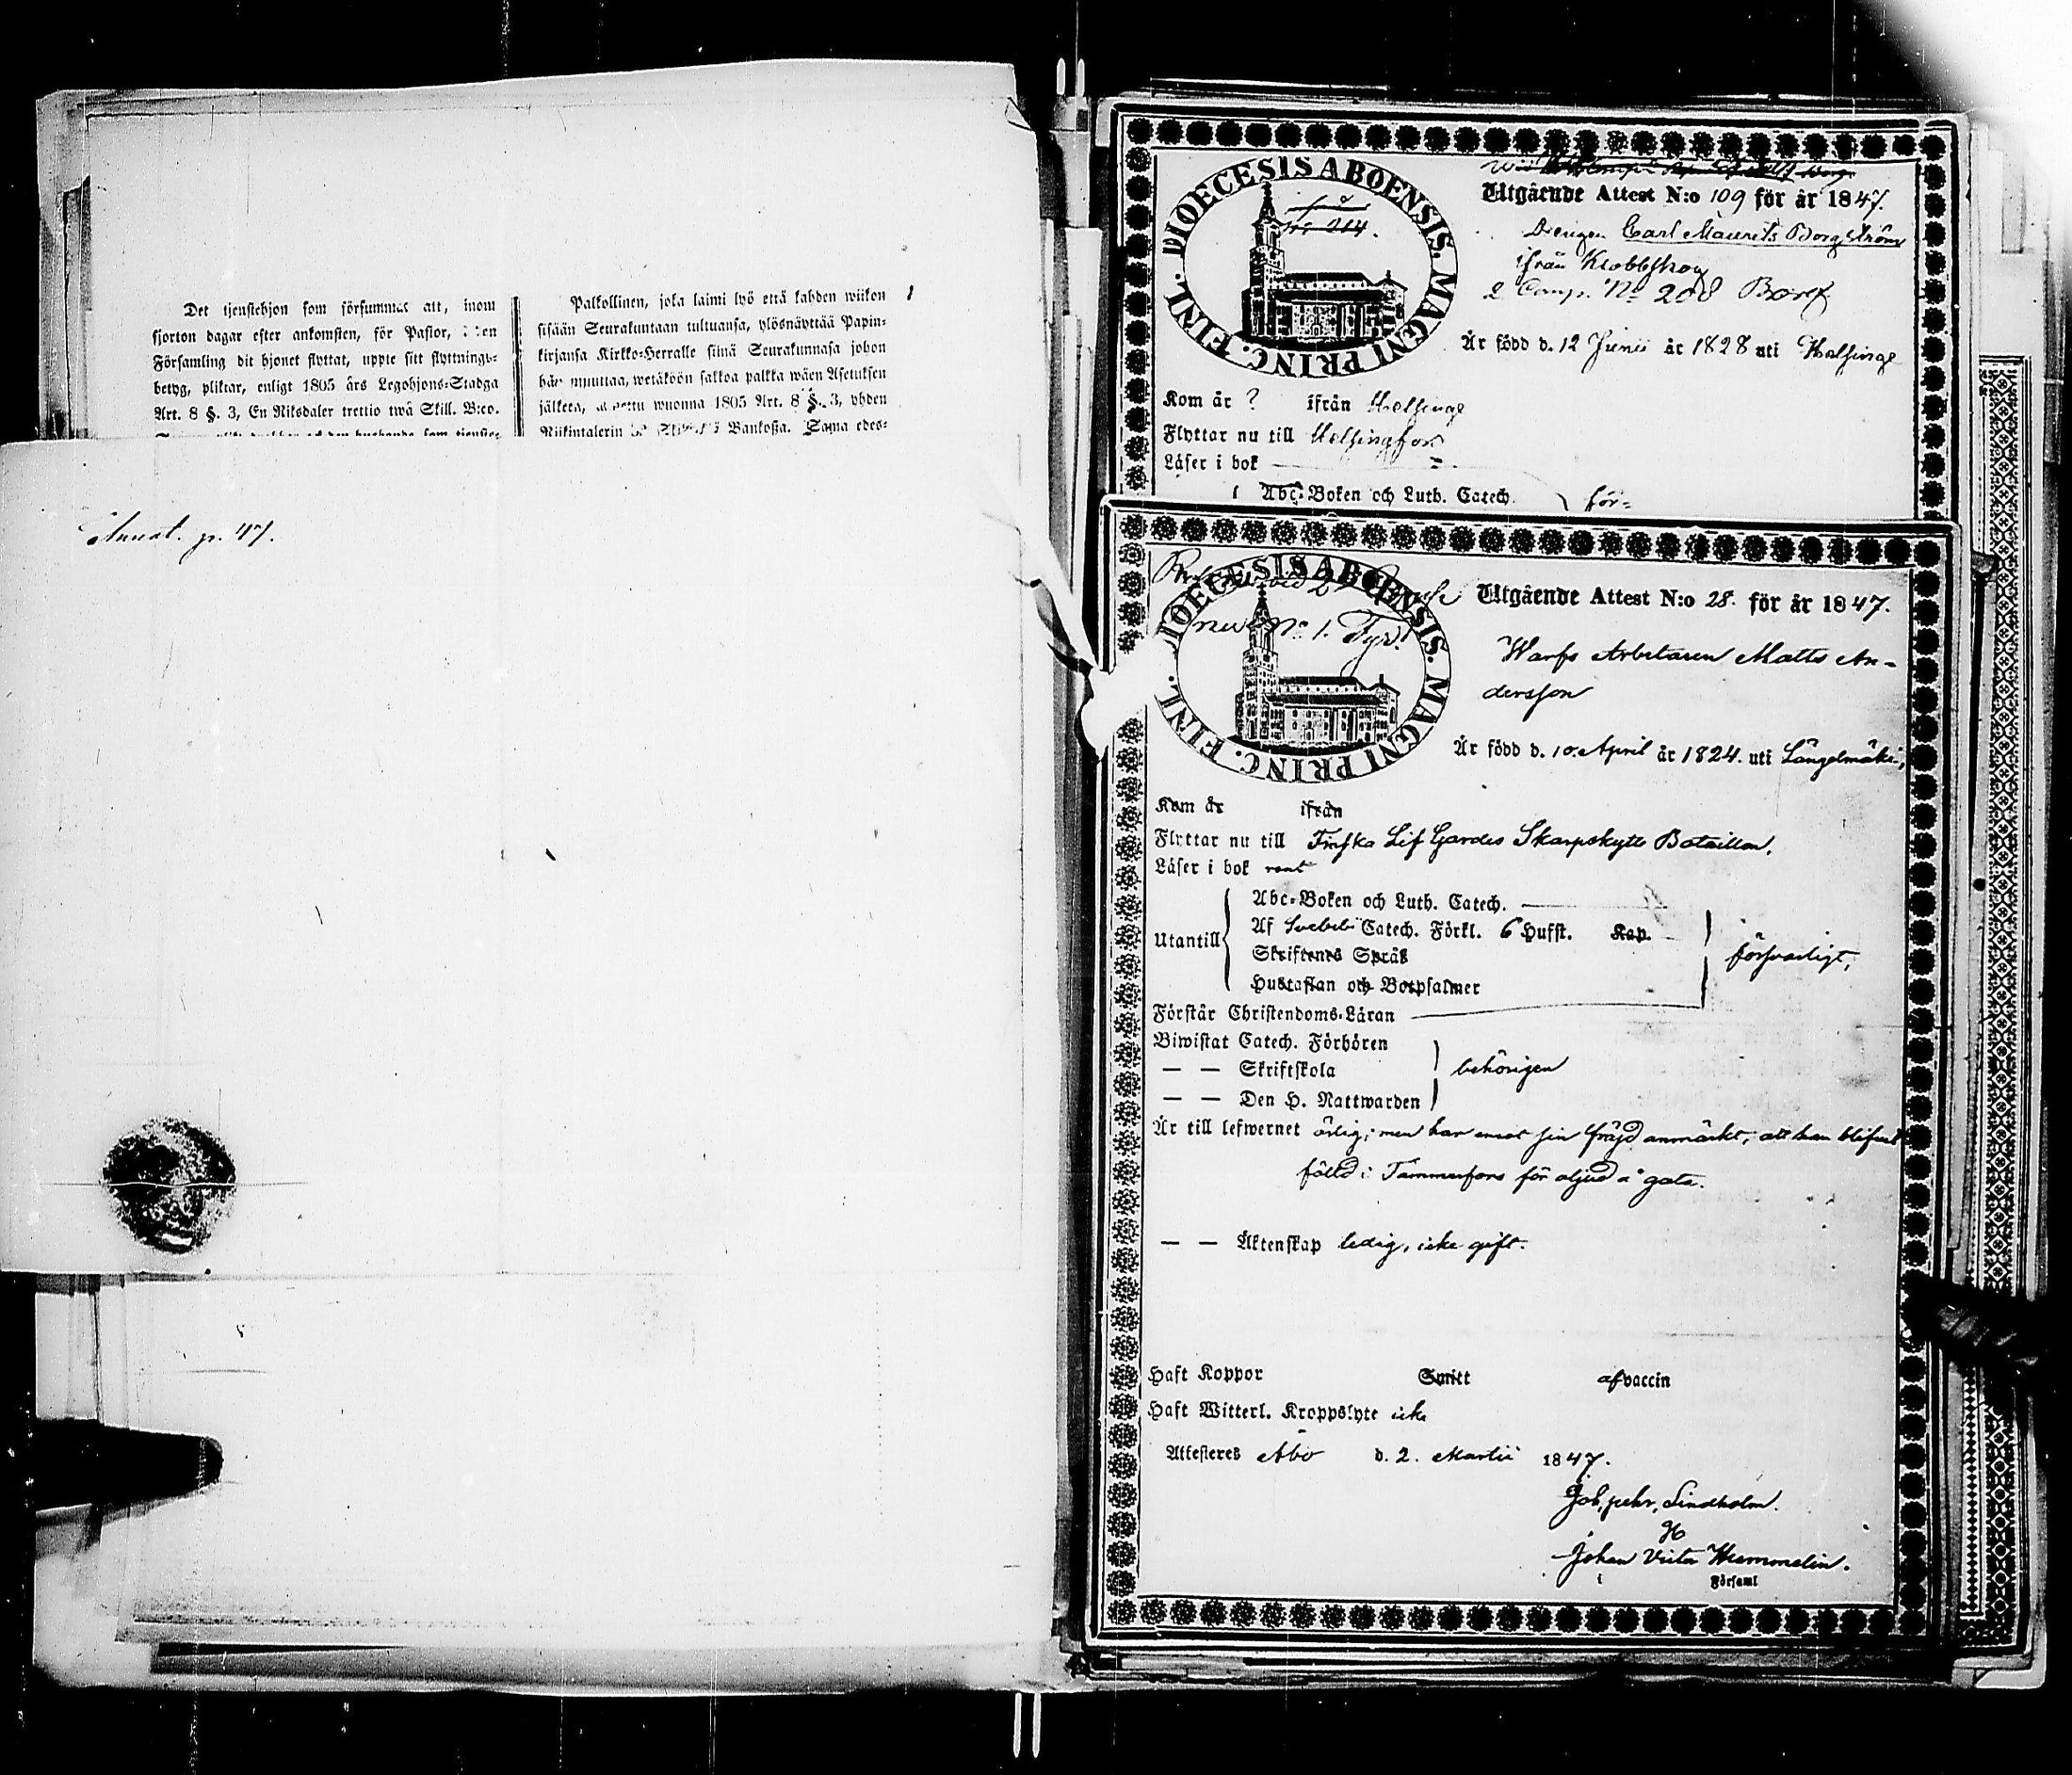 Det tjenstehjon som försummat att, inom
fjorton dagar efter ankomsten, för Pastor, i den
Församling dit hjonet flyttat, uppte sitt flyttnings-
betyg, pliktar, enligt 1805 års Legohjons-Stadga
Art. 8 §. 3, En Riksdaler trettio twå Skill. B:co.
Palkollinen, joka laimi lyö että kahden wiikon
sisään Seurakuntaan tultuansa, ylösnäyttää Papin-
kirjansa Kirkko-Herralle siinä Seurakunnasa johon
hän muuttaa, wetäköön sakkoa palkka wäen Asetuksen
jälken, wuonna 1805 Art. 8 §. 3, yhden
Riikintalerin Bankosa. Sama edes-
Annot. p. 47.
FINL. DIOECESIS ABOENSIS. MAGNI PRINC.
Utgående Attest N:o 109 för år 1847.
Drengen Carl Maurits Borgström
ifrån Klobbskog
2 Comp. No 208
Är född d. 12 Junii år 1828 uti Helsinge
Kom år ? ifrån Helsinge
Flyttar nu till Helsingfors
Läser i bok
Abc-Boken och Luth. Catech. för-
FINL. DIOECESIS ABOENSIS. MAGNI PRINC.
No 1.
Utgående Attest N:o 28. för år 1847.
Warfs Arbetaren Matts An-
dersson
Är född d. 10. April år 1824. uti Längelmäki,
Kom år ifrån
Flyttar nu till Finska Lif Gardes Skarpskytte Bataillon.
Läser i bok rent
Utantill
Abc-Boken och Luth. Catech.
Af Svebelii Catech. Förkl. 6 Hufst. Kap.
Skriftenes Språk
Hustaflan och Botpsalmer
försvarligt,
Förstår Christendoms-Läran
Biwistat Catech. Förhören
— — Skriftskola behörigen
— — Den H. Nattwarden
Är till lefwernet ärlig; men har emot sin fräjd anmärkt, att han blifvit
fälld i Tammerfors för oljud å gata.
— — Äktenskap ledig, icke gift.
Haft Koppor Smitt af vaccin
Haft Witterl. Kroppslyte icke
Attesteras Åbo d. 2. Martii 1847.
Lindholm.
Johan Victor Hummelin.
i Församl